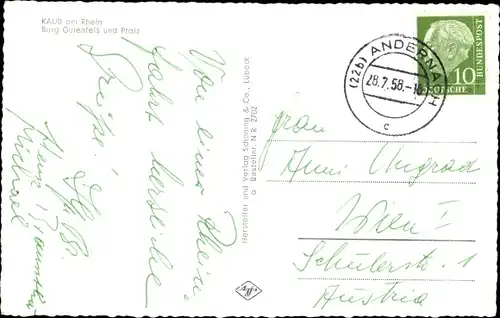 KAUB am Rhein
Burg Gutenfels und Pfalz
Von einer Rhein-
fahrt herzliche
Grüße!
Michael
Hersteller und Verlag Schöning & Co., Lübeck
a Bestellnr. N R 2702
(22b) ANDERNACH
28.7.58.-1
c
10
DEUTSCHE
BUNDESPOST
Frau
Anni Ungrad
Wien I
Schülerstr. 1
Austria